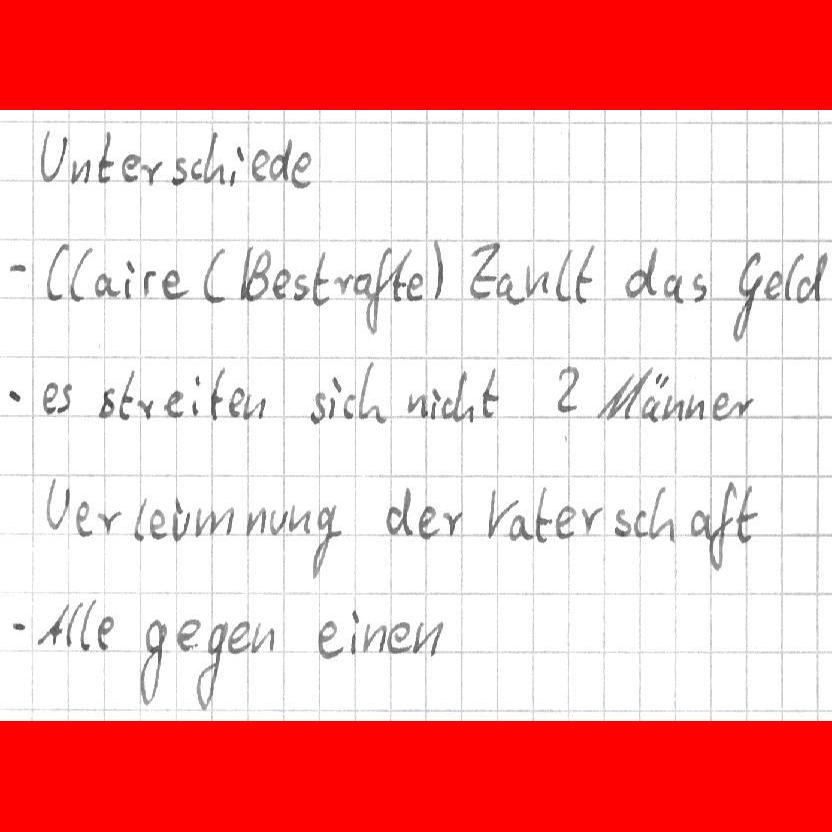 Unterschiede
- Claire (Bestrafte) Zahlt das Geld
- es streiten sich nicht 2 Männer
Verleumnung der Vaterschaft
- Alle gegen einen